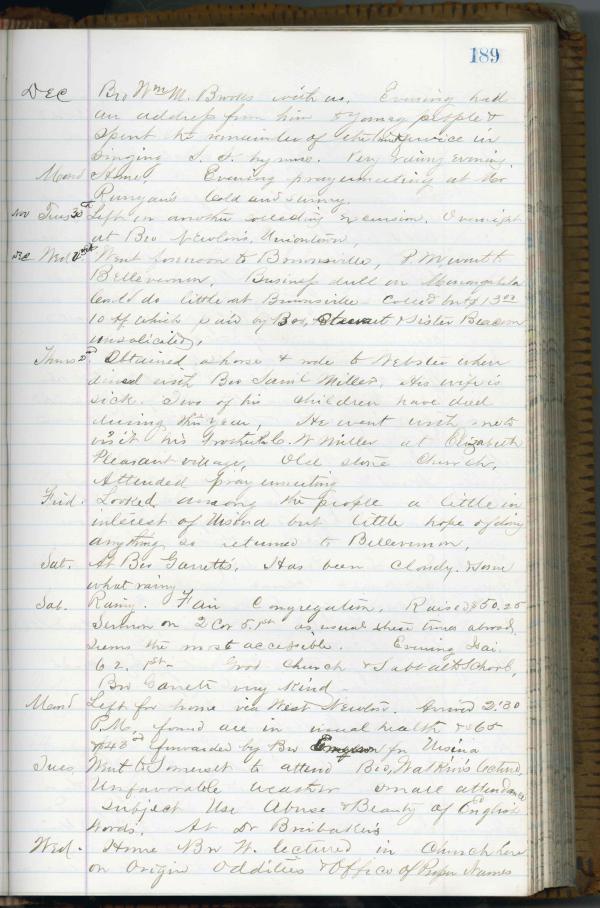 189
Dec Bro Wm M. Brooks with us. Evening had
an address from him to young people &
spent the remainder of the service in
singing S. S. hymns. Very rainy evening.
Mond Home. Evening prayermeeting at Mr
Runyan's Cold and
Nov Tues 30th Left on another collecting excursion. Overnight
at Bro Newlon's, Uniontown,
Dec Wed 1st Went forenoon to Brownsville, P.M. went to
Bellevernon, Business dull on Monongahela
Could do little at Brownsville Coll'd but 13 00
10 of which paid by Bro, Stewart & Sister Beacom
unsolicited.
Thurs 2d Obtained a horse & rode to Webster where
dined with Bro Saml Miller. His wife is
sick. Two of his children have died
during this year. He went with me to
visit his Brother C. W Miller at Elizabeth
Pleasant village, Old stone Church,
Attended prayermeeting
Frid. Looked among the people a little in
interest of but little hope of doing
anything so returned to Bellevernon,
Sat. At Bro Garrett's, Has been cloudy & some
what rainy
Sab. Rainy. Fair Congregation. Raised $50.25
Sermon on 2 Cor 5. 1st as usual these times abroad,
seems the most accessible. Evening Isai.
62. 1st Good Church & Sabbath School,
Bro Garrett very kind
Mond Left for home via West Newton. Arrived 2:30
P.M. found all in usual health &
forwarded by Bro for
Tues Went to Somerset to attend Bro, Watkin's lecture,
Unfavorable weather small attendance
Subject Use Abuse & Beauty of English
Words. At Dr Brubaker's
Wed. Home Bro W. lectured in Church here
on Origin Oddities & Office of Proper Names